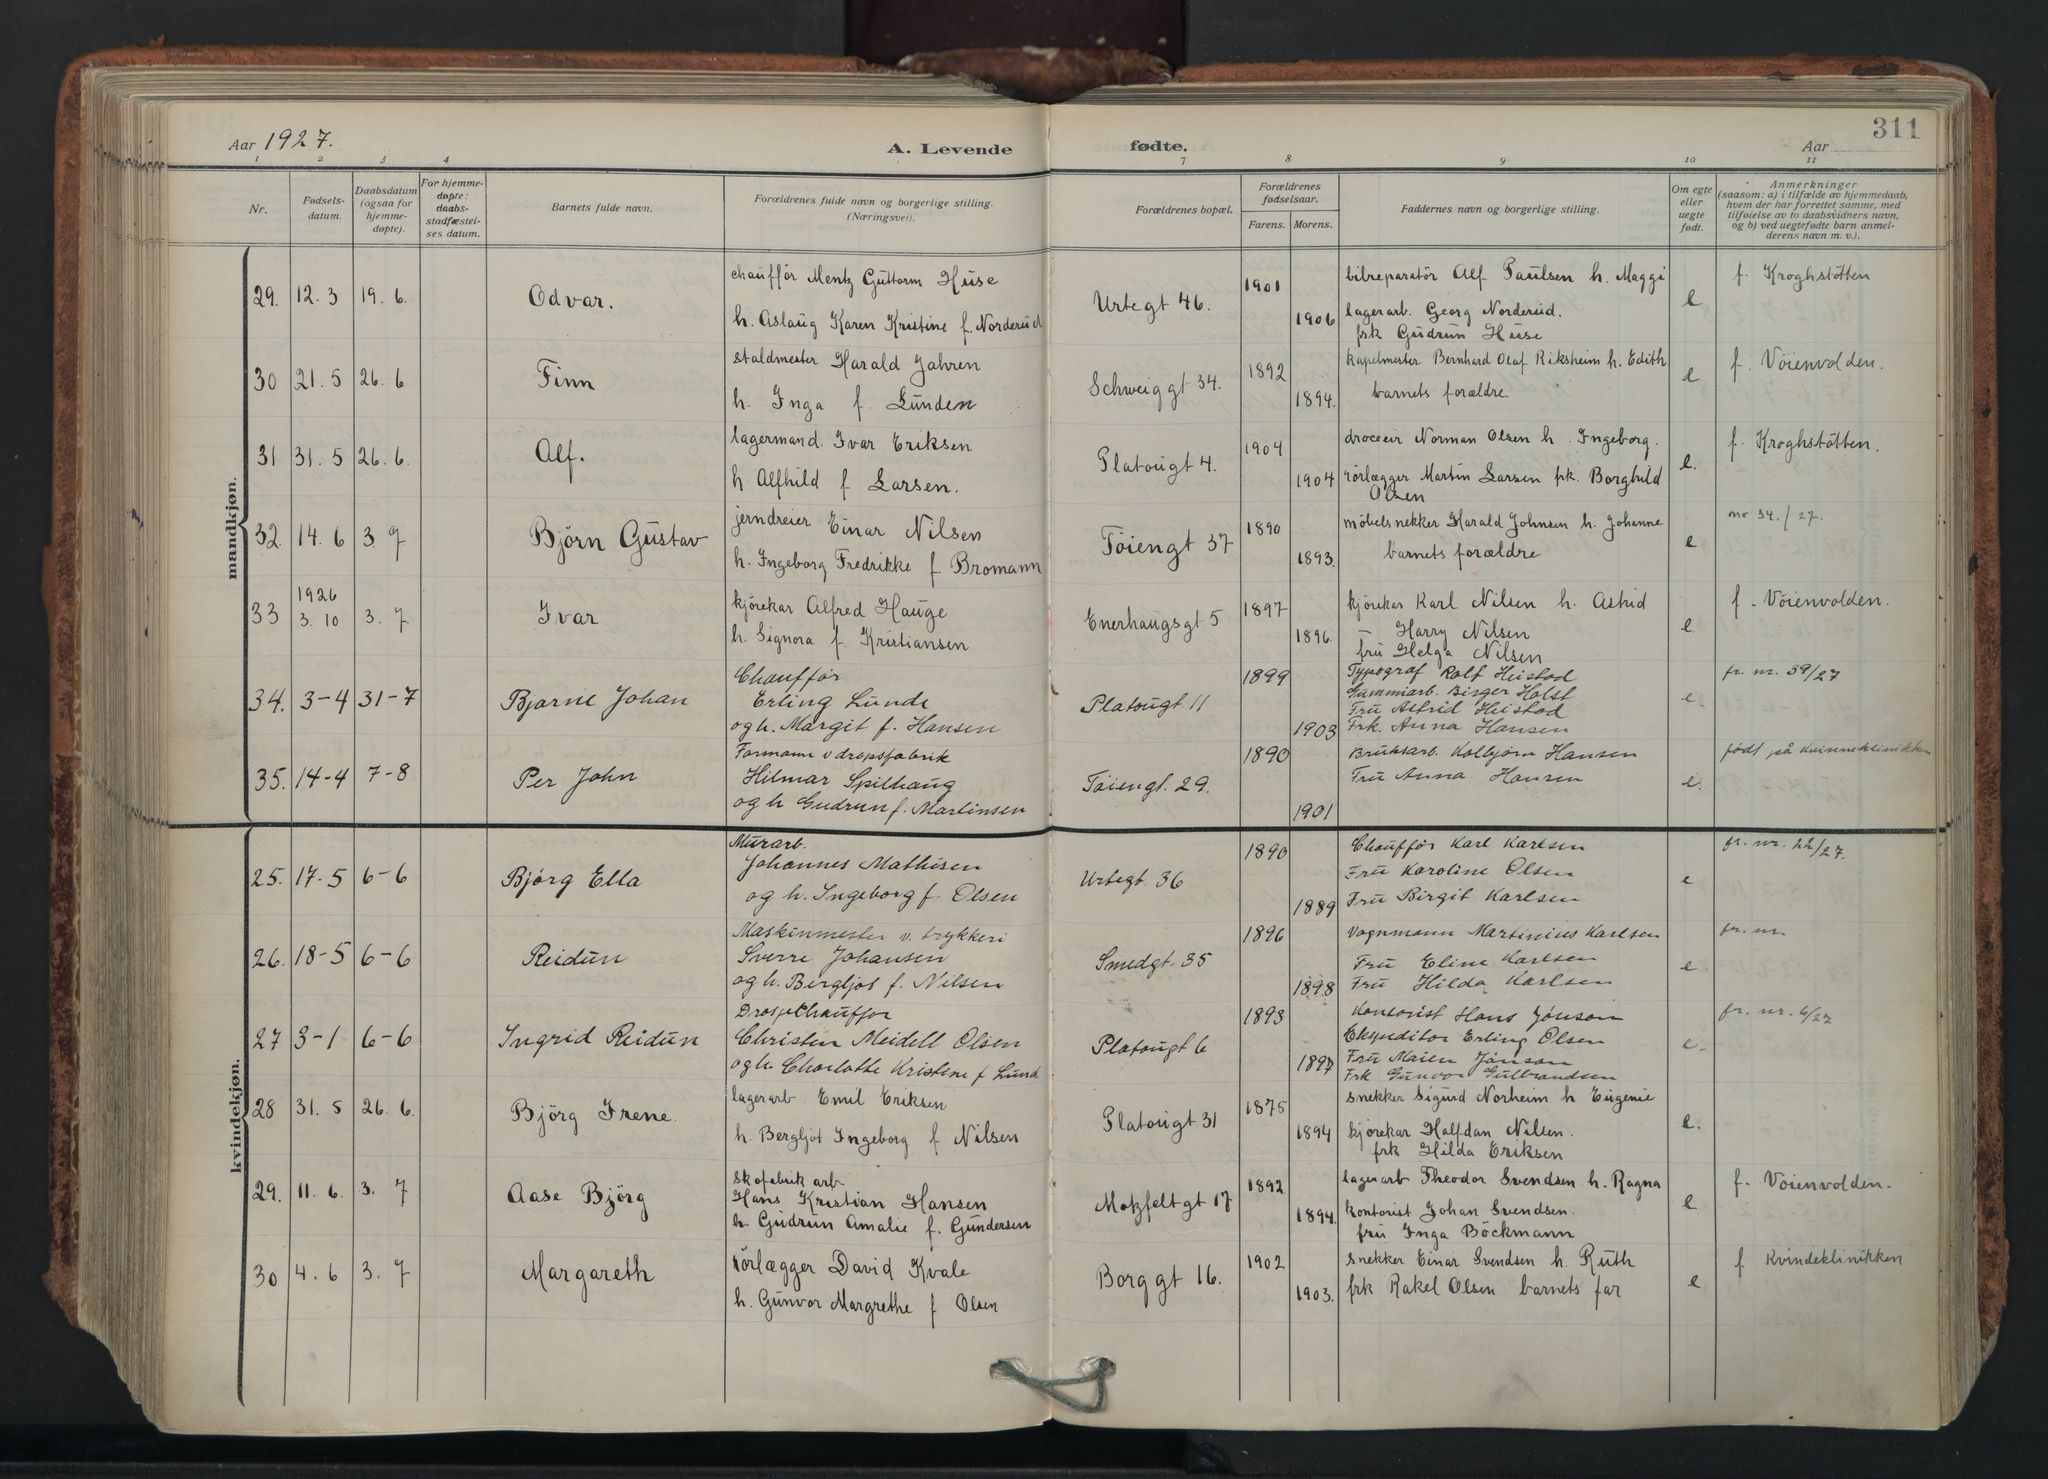 311
Aar 1927.
A. Levende fødte.
Aar
1 2 3 4 7 8 9 10 11
Nr.
Fødsels-
datum.
Daabsdatum
(ogsaa for
hjemme-
døpte).
For hjemme-
døpte:
daabs-
stadfæstel-
ses datum.
Barnets fulde navn.
Forældrenes fulde navn og borgerlige stilling.
(Næringsvei).
Forældrenes bopæl.
Forældrenes
fødselsaar.
Farens. Morens.
Faddernes navn og borgerlige stilling.
Om egte
eller
uegte
født.
Anmerkninger
(saasom: a) i tilfælde av hjemmedaab,
hvem der har forrettet samme, med
tilføielse av to daabsvidners navn,
og b) ved uegtefødte barn anmel-
derens navn m. v.).
mandkjøn.
29. 12. 3 19. 6. Odvar.
chauffør Mentz Guttorm Huse
h. Aslaug Karen Kristine f. Norderud
Urtegt 46. 1901 1906
bilreparatør Alf Paulsen h. Maggi
lagerarb. Georg Norderud.
frk Gudrun Huse
e f. Kroghstøtten
30 21. 5 26. 6 Finn
staldmester Harald Jahren
h. Inga f. Lunden
Schweiggt 34. 1892 1894.
kapelmester Bernhard Olaf Riksheim h. Edith
barnets forældre.
e f. Vöienvolden.
31 31. 5 26. 6. Alf.
lagermand. Ivar Eriksen
h Alfhild f Larsen.
Platougt 4. 1904 1904
droceir Norman Olsen h. Ingeborg.
rørlægger Martin Larsen frk. Borghild
Olsen
e. f. Kroghstøtten.
32. 14. 6 3. 7 Björn Gustav
jerndreier Einar Nilsen
h. Ingeborg Fredrikke f. Bromann
Töiengt 37 1890 1893.
møbelsnekker Harald Johnsen h. Johanne
barnets forældre
e no 34./27.
33 1926
3. 10 3. 7 Ivar
kjørekar Alfred Hauge
h. Signora f. Kristiansen
Enerhaugsgt 5 1897 1896.
kjørekar Karl Nilsen h. Astrid
— Harry Nilsen
fru Helga Nilsen
e f. Vöienvolden.
34. 3-4 31-7 Bjarne Johan
Chauffør
Erling Lunde
og h. Margit f. Hansen
Platougt 11 1899 1903
Typograf Rolf Heistad
Gummiarb. Birger Holst
Fru Astrid Heistad
Frk. Anna Hansen
e. fr. nr. 39/27
35. 14-4 7-8 Per John
Formann v dropsfabrik
Hilmar Spilhaug
og h Gudrun f. Martinsen
Töiengt. 29. 1890 1901
Bruksarb. Kolbjørn Hansen
Fru Anna Hansen
e. født på kvinneklinikken
kvindekjøn.
25. 17-5 6-6 Bjørg Ella
Murarb.
Johannes Mathisen
og h. Ingeborg f. Olsen
Urtegt. 36 1890 1889
Chauffør Karl Karlsen
Fru Karoline Olsen
Fru Birgit Karlsen
e fr. nr. 22/27.
26. 18-5 6-6 Reidun
Maskinmester v. trykkeri
Sverre Johansen
og h. Bergljot f. Nilsen
Smedgt. 35 1896 1898
Vognmann Martinius Karlsen
Fru Eline Karlsen
Fru Hilda Karlsen
e fr. nr.
27 3-1 6-6 Ingrid Reidun
Drosjechauffør
Christen Meidell Olsen
og h. Charlotte Kristine f Lund
Platougt 6 1893 1897
Kontorist Hans Jönson
Ekspeditor Erling Olsen
Fru Maien Jönson
Frk Gunvor Gulbrandsen
e. fr. nr. 6/27
28 31. 5 26. 6. Björg Irene.
lagerarb. Emil Eriksen
h. Bergljot Ingeborg f Nilsen
Platougt 31 1875 1894
snekker Sigurd Norheim h Eugenie
kjørekar Halfdan Nilsen.
frk Hilda Eriksen
e.
29. 11. 6. 3. 7 Aase Björg
skofabrik arb
Hans Kristian Hansen
h. Gudrun Amalie f. Gundersen
Motzfeltgt 17 1892 1894.
lagerarb Theodor Svendsen h. Ragna
kontorist Johan Svendsen.
fru Inga Böckmann
e f. Vöienvolden.
30 4. 6 3. 7 Margareth
rørlægger David Kvale
h. Gunvor Margrethe f Olsen
Borggt 16. 1902 1903.
snekker Einar Svendsen h. Ruth
frk Rakel Olsen barnets far
e f Kvindeklinikken